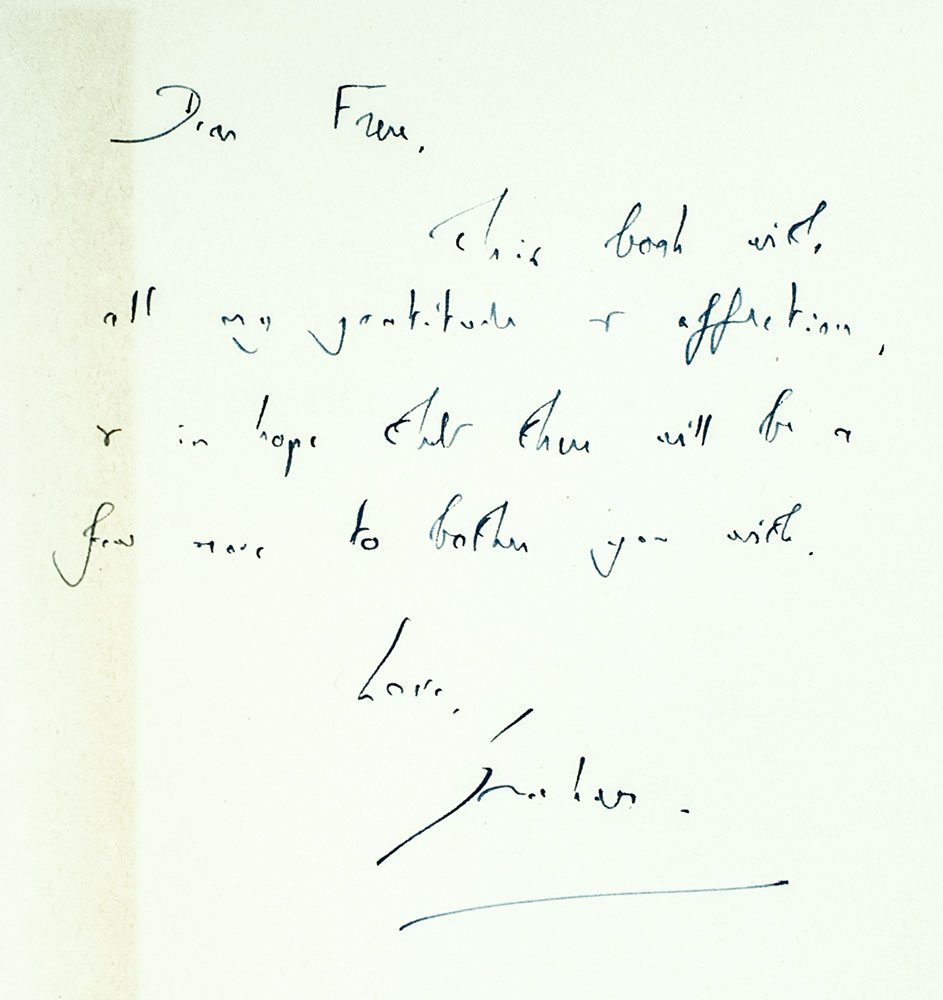 Dear Frere,
this book with
all my gratitude & affection,
& in hope that there will be a
few more to bother you with.
Love,